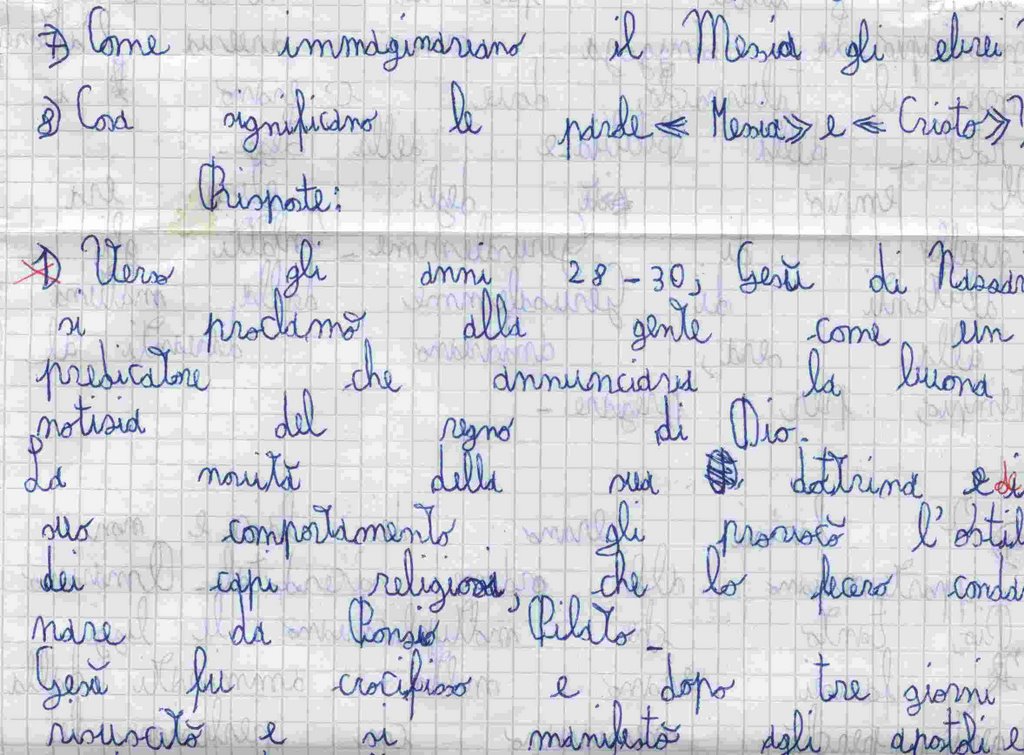 7) Come immaginavano il Messia gli ebrei?
8) Cosa significano le parole « Messia» e « Cristo»?
Risposte:
1) Verso gli anni 28-30, Gesù di Nazar
si proclamò alla gente come un
predicatore che annunciava la buona
notizia del regno di Dio.
La novità della sua dottrina e di
suo comportamento gli provocò l'ostil
dei capi religiosi, che lo fecero conda
nare da Ponzio Pilato.
Gesù fu crocifisso e dopo tre giorni
risuscitò e si manifestò agli apostoli e